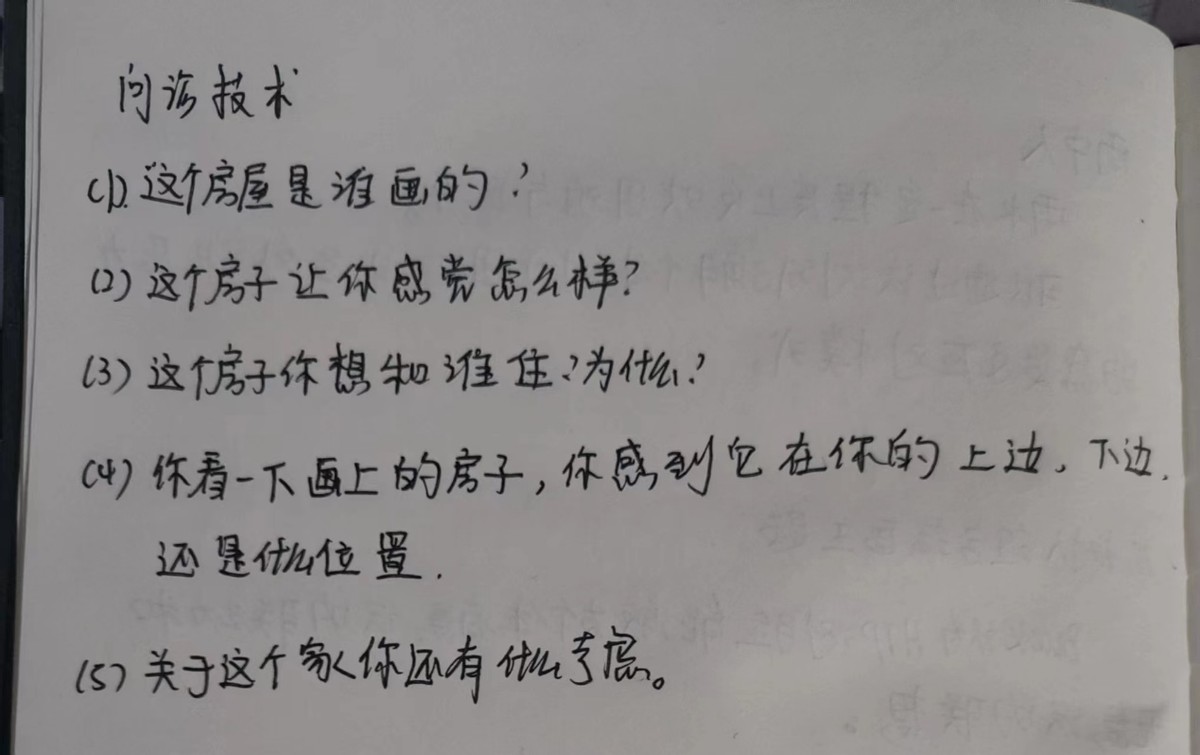 问诊技术
(1).这个房屋是谁画的?
(2) 这个房子让你感觉怎么样?
(3) 这个房子你想和谁住?为什么?
(4) 你看一下画上的房子,你感到它在你的上边、下边、
还是什么位置.
(5) 关于这个家你还有什么考虑。